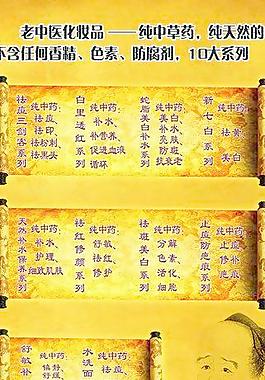 老中医化妆品——纯中草药，纯天然的
不含任何香精、色素、防腐剂，10大系列
祛痘三剑客系列
纯中药：
祛痘
祛印
祛粉刺
祛黑头
白里透红系列
纯中药：
补水
营养
促进血液
循环
蛇脂美白补水系列
纯中药：
美白
补水
亮肤
防皱
抗衰老
新七白系列
纯中药：
祛黄
美白
天然补水保养系列
纯中药：
补水
护理
细致肌肤
祛红修颜系列
纯中药：
舒敏
祛红
修护
祛斑美白系列
纯中药：
分解
色素
活化
细胞
止痘防疤痕系列
纯中药：
止痘
修补
疤痕
舒敏补
纯中药：
镇静
舒缓
水洗面
纯中药：
祛痘